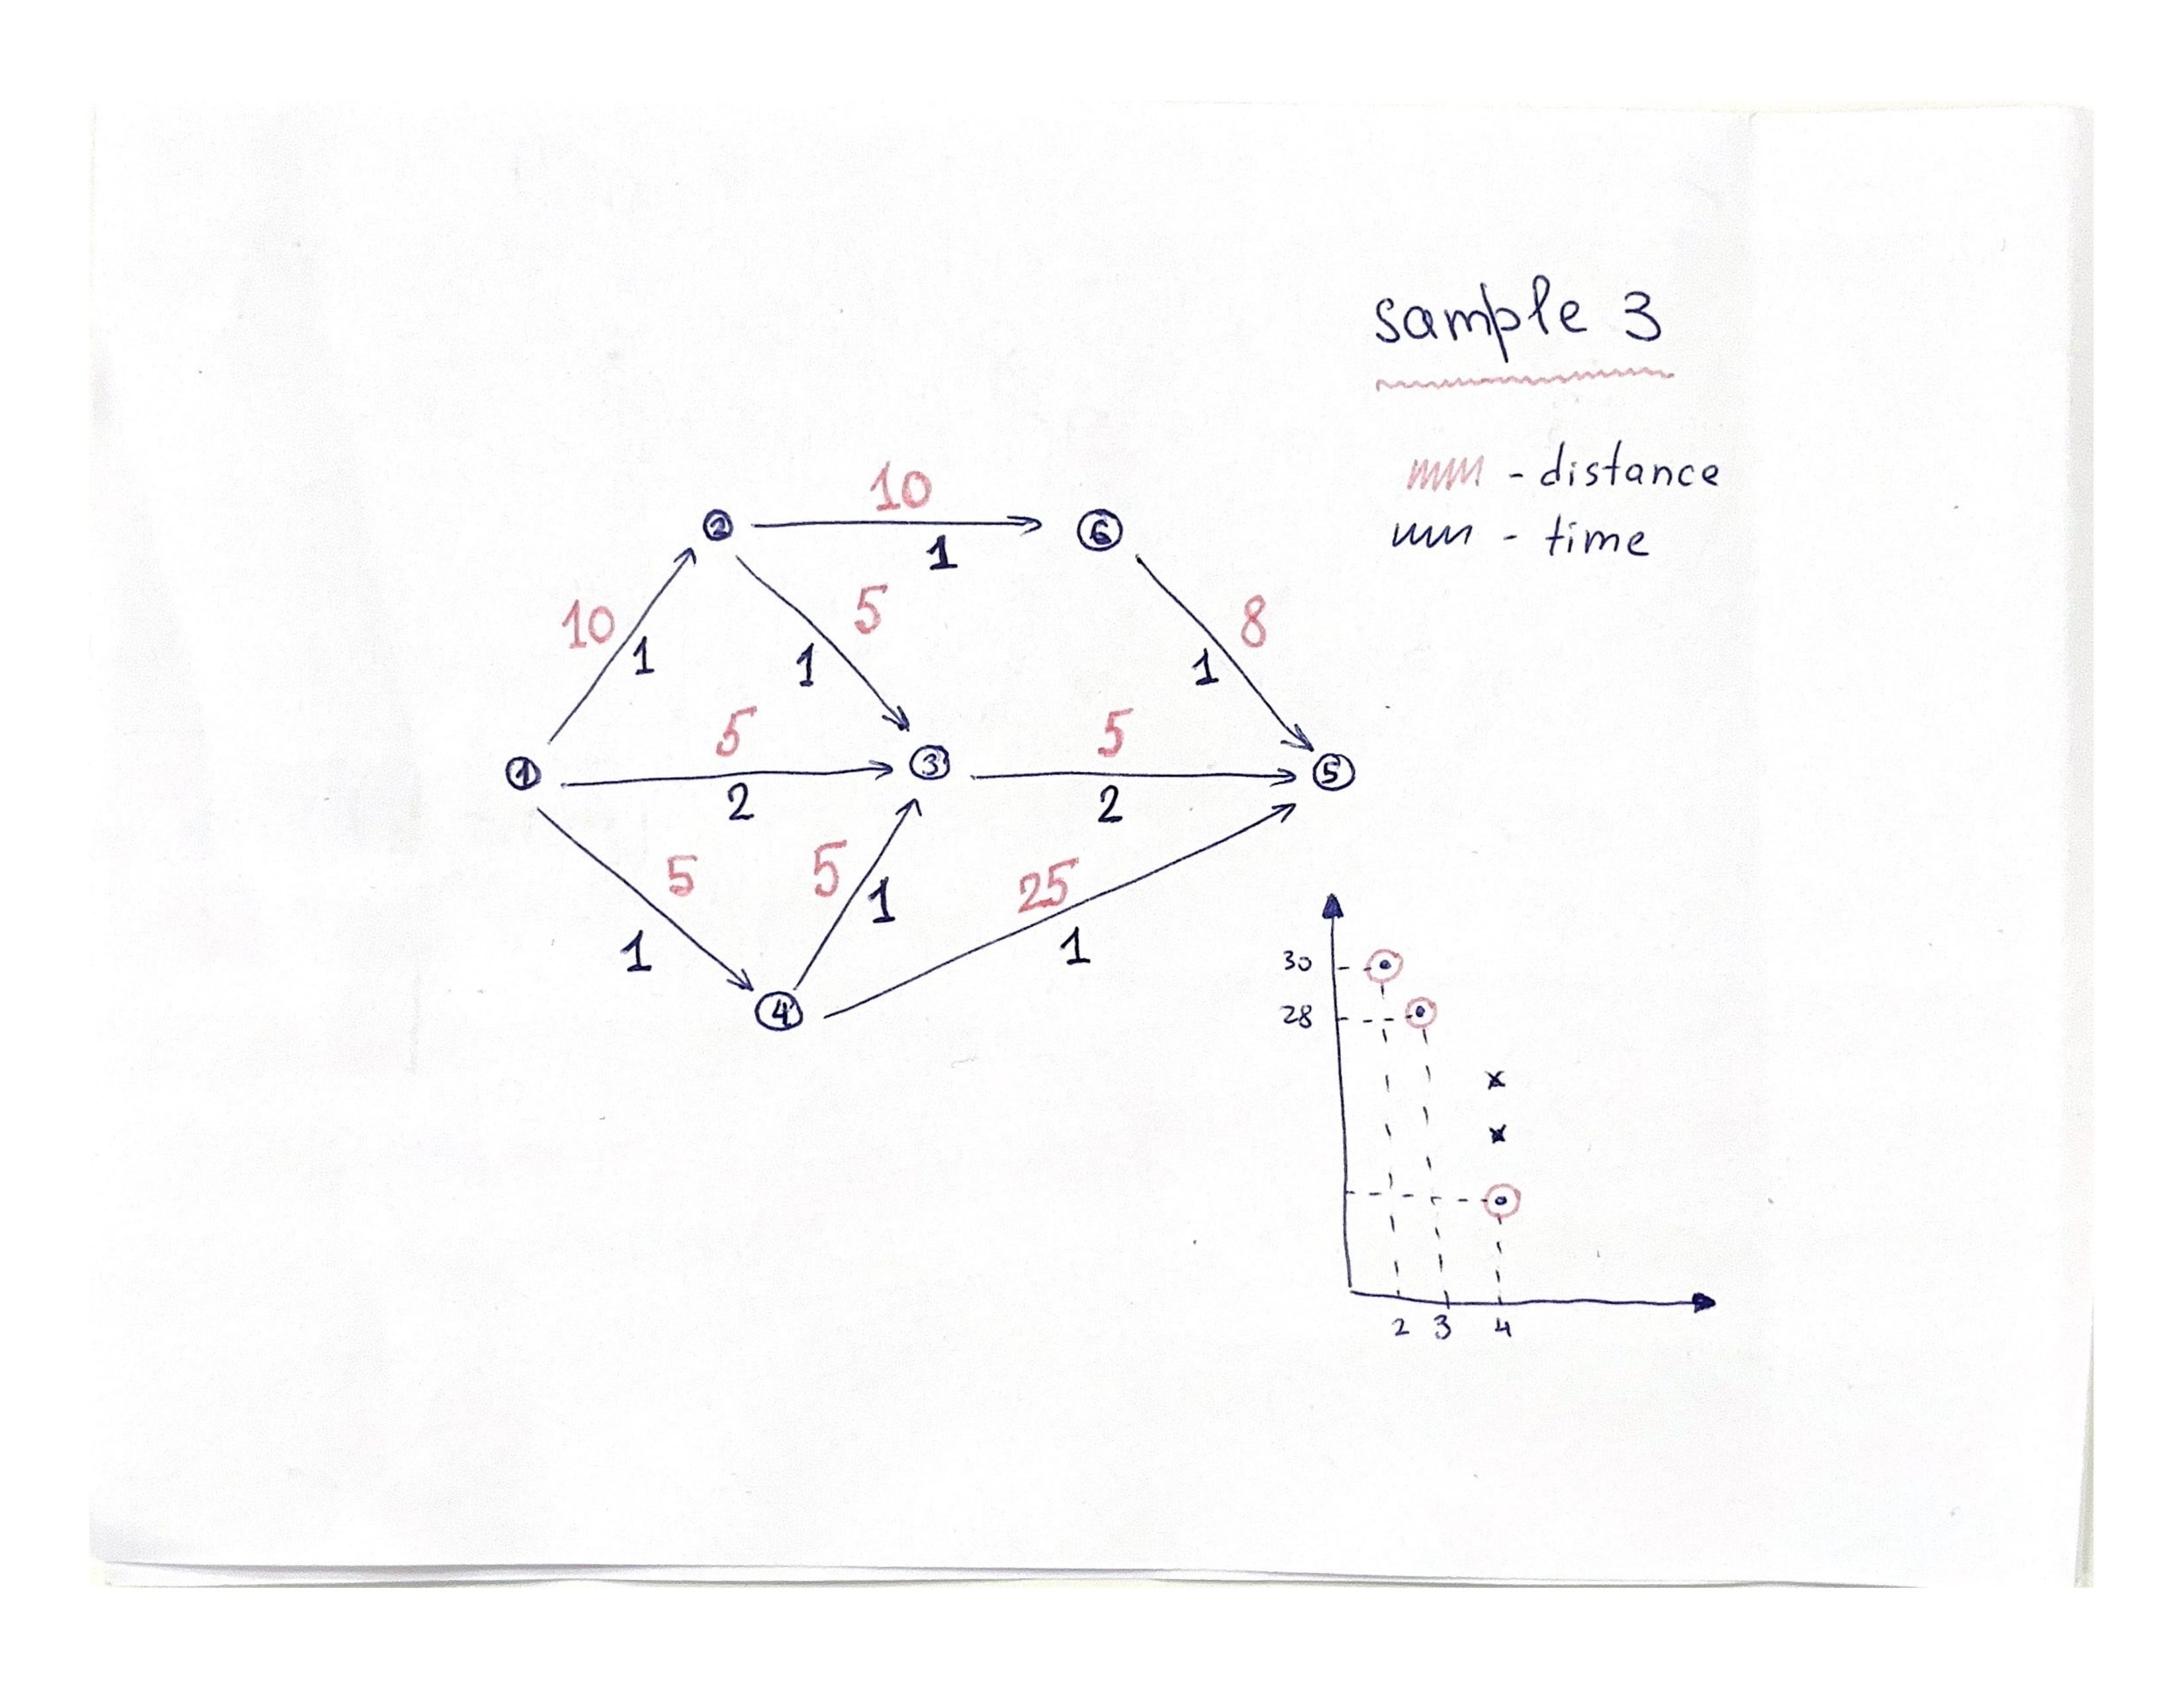 sample 3
- distance
- time
10
2
6
1
10
1
5
1
8
1
5
5
1
3
5
2
2
5
5
1
1
25
1
4
30
28
x
x
2 3 4